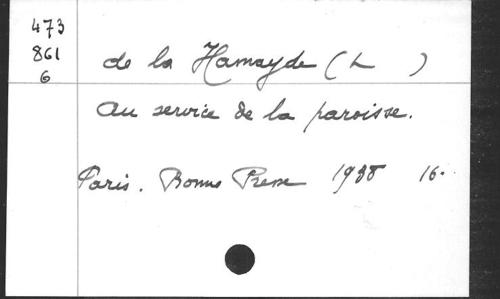 473
861
6
de la Hamayde (L )
Au service de la paroisse.
Paris. Bonne Presse 1938 16.